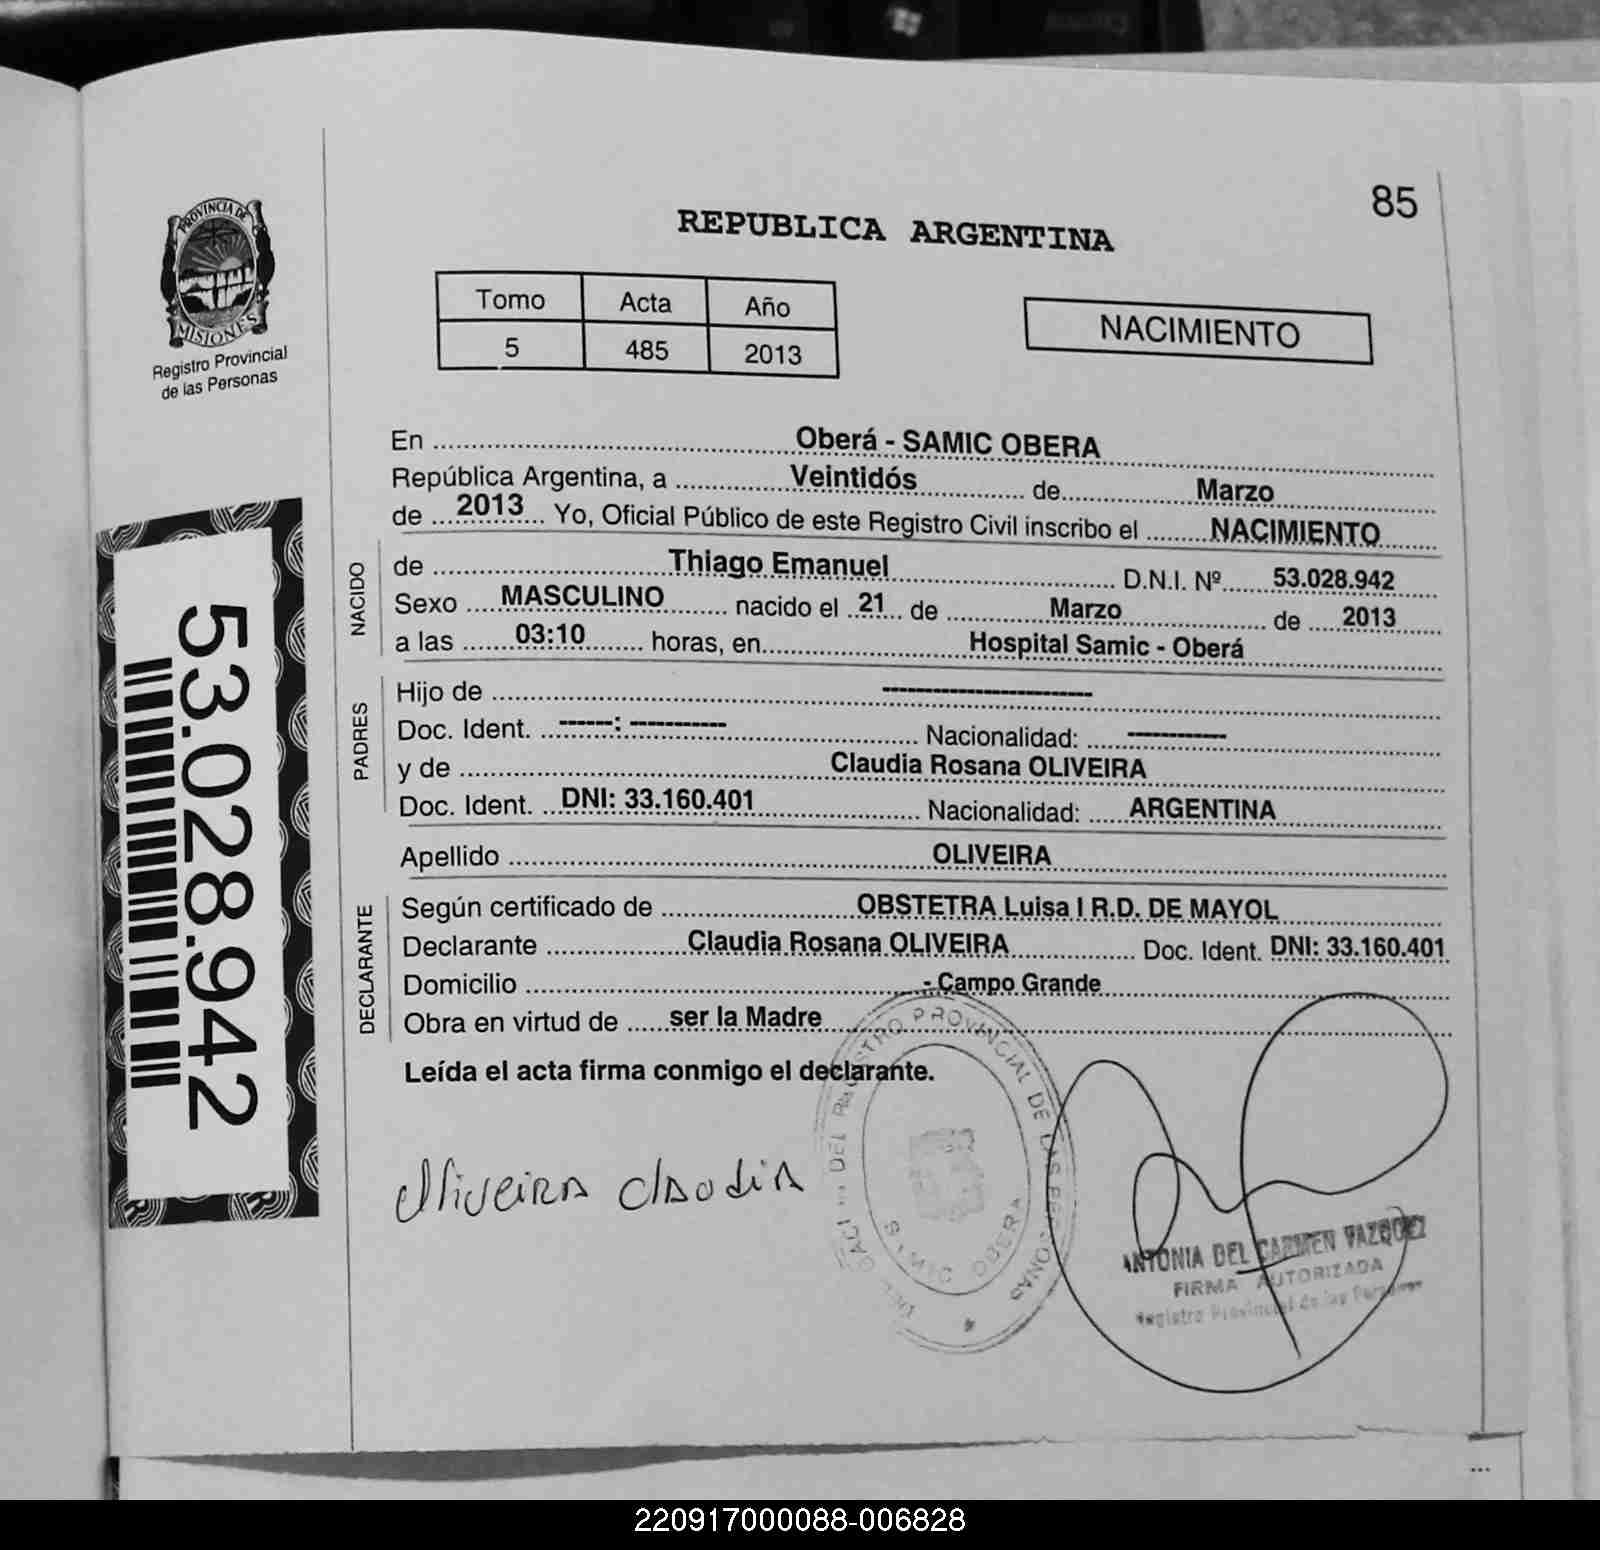 85
REPUBLICA ARGENTINA
PROVINCIA DE
MISIONES
Registro Provincial
de las Personas
Tomo Acta Año
5 485 2013
NACIMIENTO
En Oberá - SAMIC OBERA
República Argentina, a Veintidós de Marzo
de 2013 Yo, Oficial Público de este Registro Civil inscribo el NACIMIENTO
NACIDO
de Thiago Emanuel D.N.I. Nº 53.028.942
Sexo MASCULINO nacido el 21 de Marzo de 2013
a las 03:10 horas, en Hospital Samic - Oberá
PADRES
Hijo de -----------------------
Doc. Ident. ------: ----------- Nacionalidad: ------------
y de Claudia Rosana OLIVEIRA
Doc. Ident. DNI: 33.160.401 Nacionalidad: ARGENTINA
Apellido OLIVEIRA
DECLARANTE
Según certificado de OBSTETRA Luisa I R.D. DE MAYOL
Declarante Claudia Rosana OLIVEIRA Doc. Ident. DNI: 33.160.401
Domicilio - Campo Grande
Obra en virtud de ser la Madre
Leída el acta firma conmigo el declarante.
53.028.942
Oliveira Claudia
DEL REGISTRO PROVINCIAL DE LAS PERSONAS
SAMIC OBERA
ANTONIA DEL CARMEN VAZQUEZ
FIRMA AUTORIZADA
Registro Provincial de las Personas
220917000088-006828